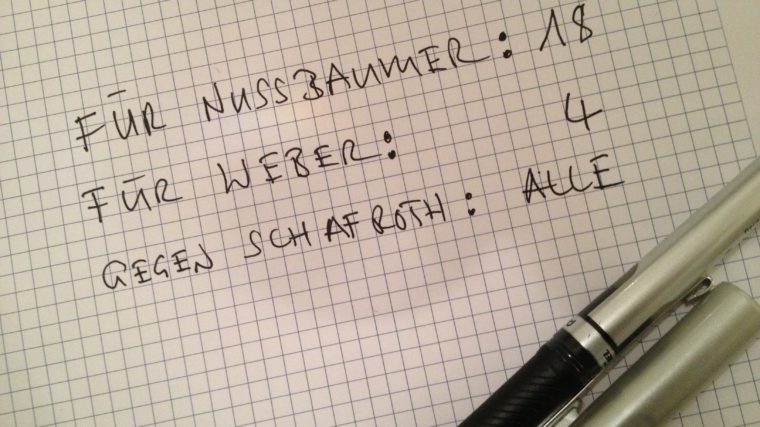 FÜR NUSSBAUMER: 18
FÜR WEBER: 4
GEGEN SCHAFROTH: ALLE